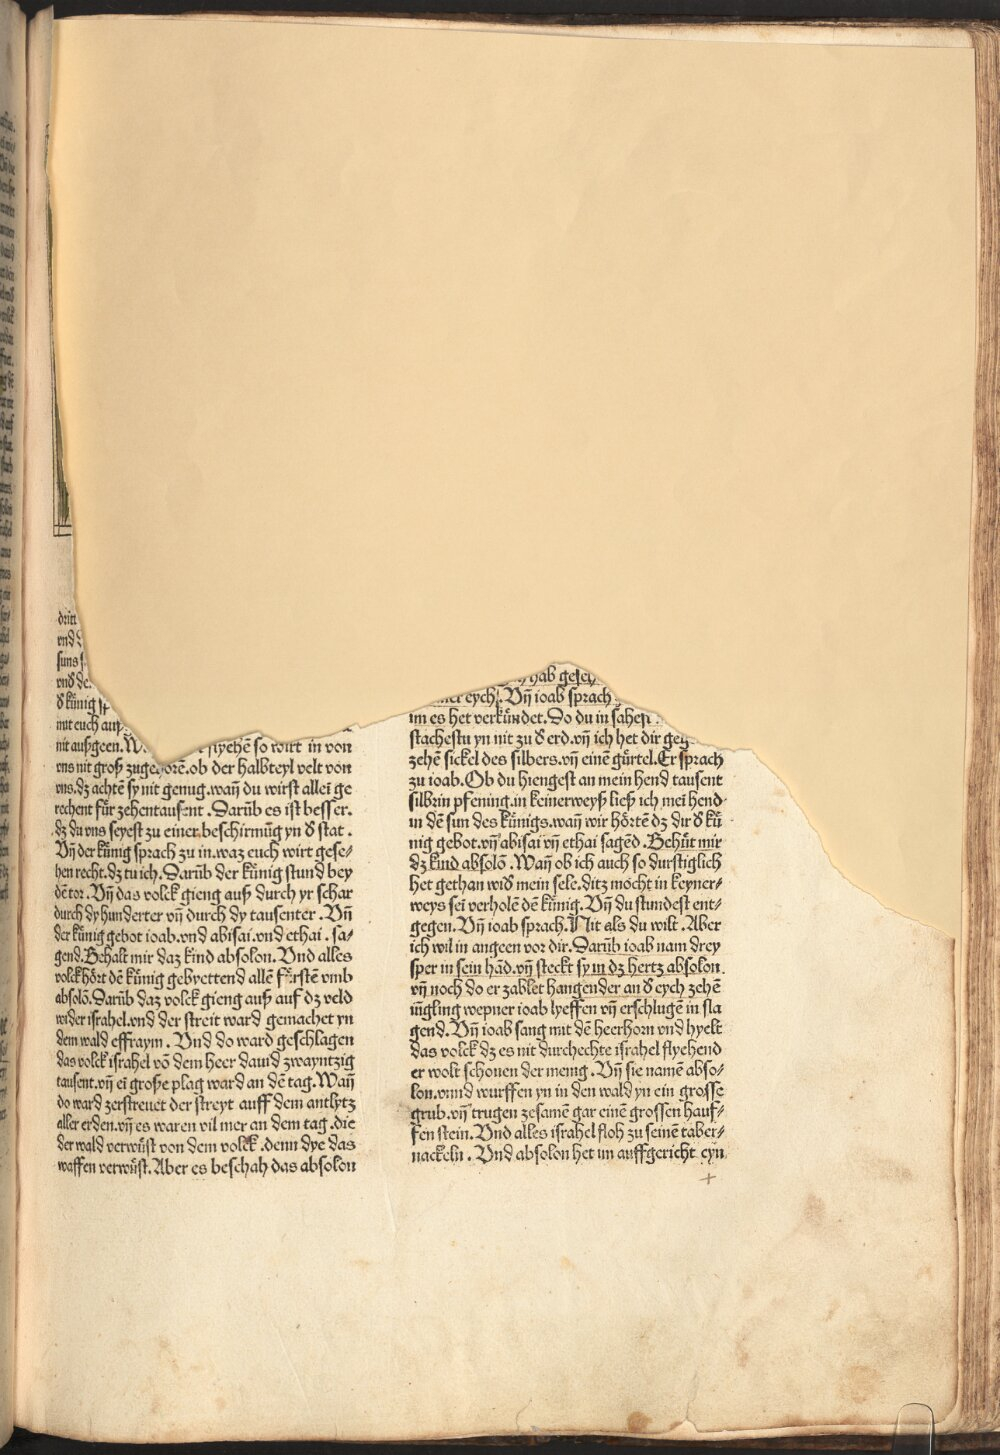 dritt
vnd
suns
vnd de
d̕ künig sp
mit euch auß
nit außgeen. flyehē so wirt in von
vns nit groß zugehorē.ob der halbteyl velt von
vns.dz achtē sy nit genug.wañ du wirst allei ge
rechent für zehentausent .Darūb es ist besser.
dz du vns seyest zu einer beschirmūg yn d̕ stat .
Vñ der künig sprach zu in.waz euch wirt gese⸗
hen recht.dz tu ich.Darūb der künig stund bey
dē tor .Vñ das volck gieng auß durch yr schar
durch dy hunderter vñ durch dy tausenter .Vñ
der künig gebot ioab.vnd abisai.vnd ethai . sa⸗
gend.Behalt mir daz kind absolon. Vnd alles
volck hört dē künig gebyettend allē fürstē vmb
absolō.Darūb daz volck gieng auß auf dz veld
wider israhel.vnd der streit ward gemachet yn
dem wald effraym . Vnd do ward geschlagen
das volck israhel vō dem heer dauid zwayntzig
tausent.vñ ei große plag ward an dē tag.Wañ
do ward zerstreuet der streyt auff dem antlytz
aller erden.vñ es waren vil mer an dem tag .die
der wald verwüst von dem volck .denn dye das
waffen verwüst.Aber es beschah das absolon
hab gesehen
einer eych. Vñ ioab sprach
im es het verkündet.So du in sahest
stachestu yn nit zu d̕ erd.vñ ich het dir geg
zehē sickel des silbers.vñ einē gürtel.Er sprach
zu ioab.Ob du hiengest an mein hend tausent
silbrin pfening.in keinerweyß ließ ich mei hend
in dē sun des künigs.wañ wir hörtē dz dir d̕ kü
nig gebot.vñ abisai vñ ethai sagēd .Behüt mir
dz kind absolō .Wañ ob ich auch so durstiglich
het gethan wid̕ mein sele.ditz möcht in keyner⸗
weys sei verholē dē künig.Vñ du stundest ent⸗
gegen.Vñ ioab sprach.Nit als du wilt .Aber
ich wil in angeen vor dir.Darūb ioab nam drey
sper in sein hād.vñ steckt sy in dz hertz absolon.
vñ noch do er zablet hangender an d̕ eych zehē
iūgling wepner ioab lyeffen vñ erschlugē in sla
gend.Vñ ioab sang mit dē heerhorn vnd hyelt
das volck dz es nit durchechte israhel flyehend
er wolt schonen der menig .Vñ sie namē abso⸗
lon.vnnd wurffen yn in den wald yn ein grosse
grub.vñ trugen zesamē gar einē grossen hauf⸗
fen stein.Vnd alles israhel floh zu seinē taber⸗
nackeln . Vnd absolon het im auffgericht eyn